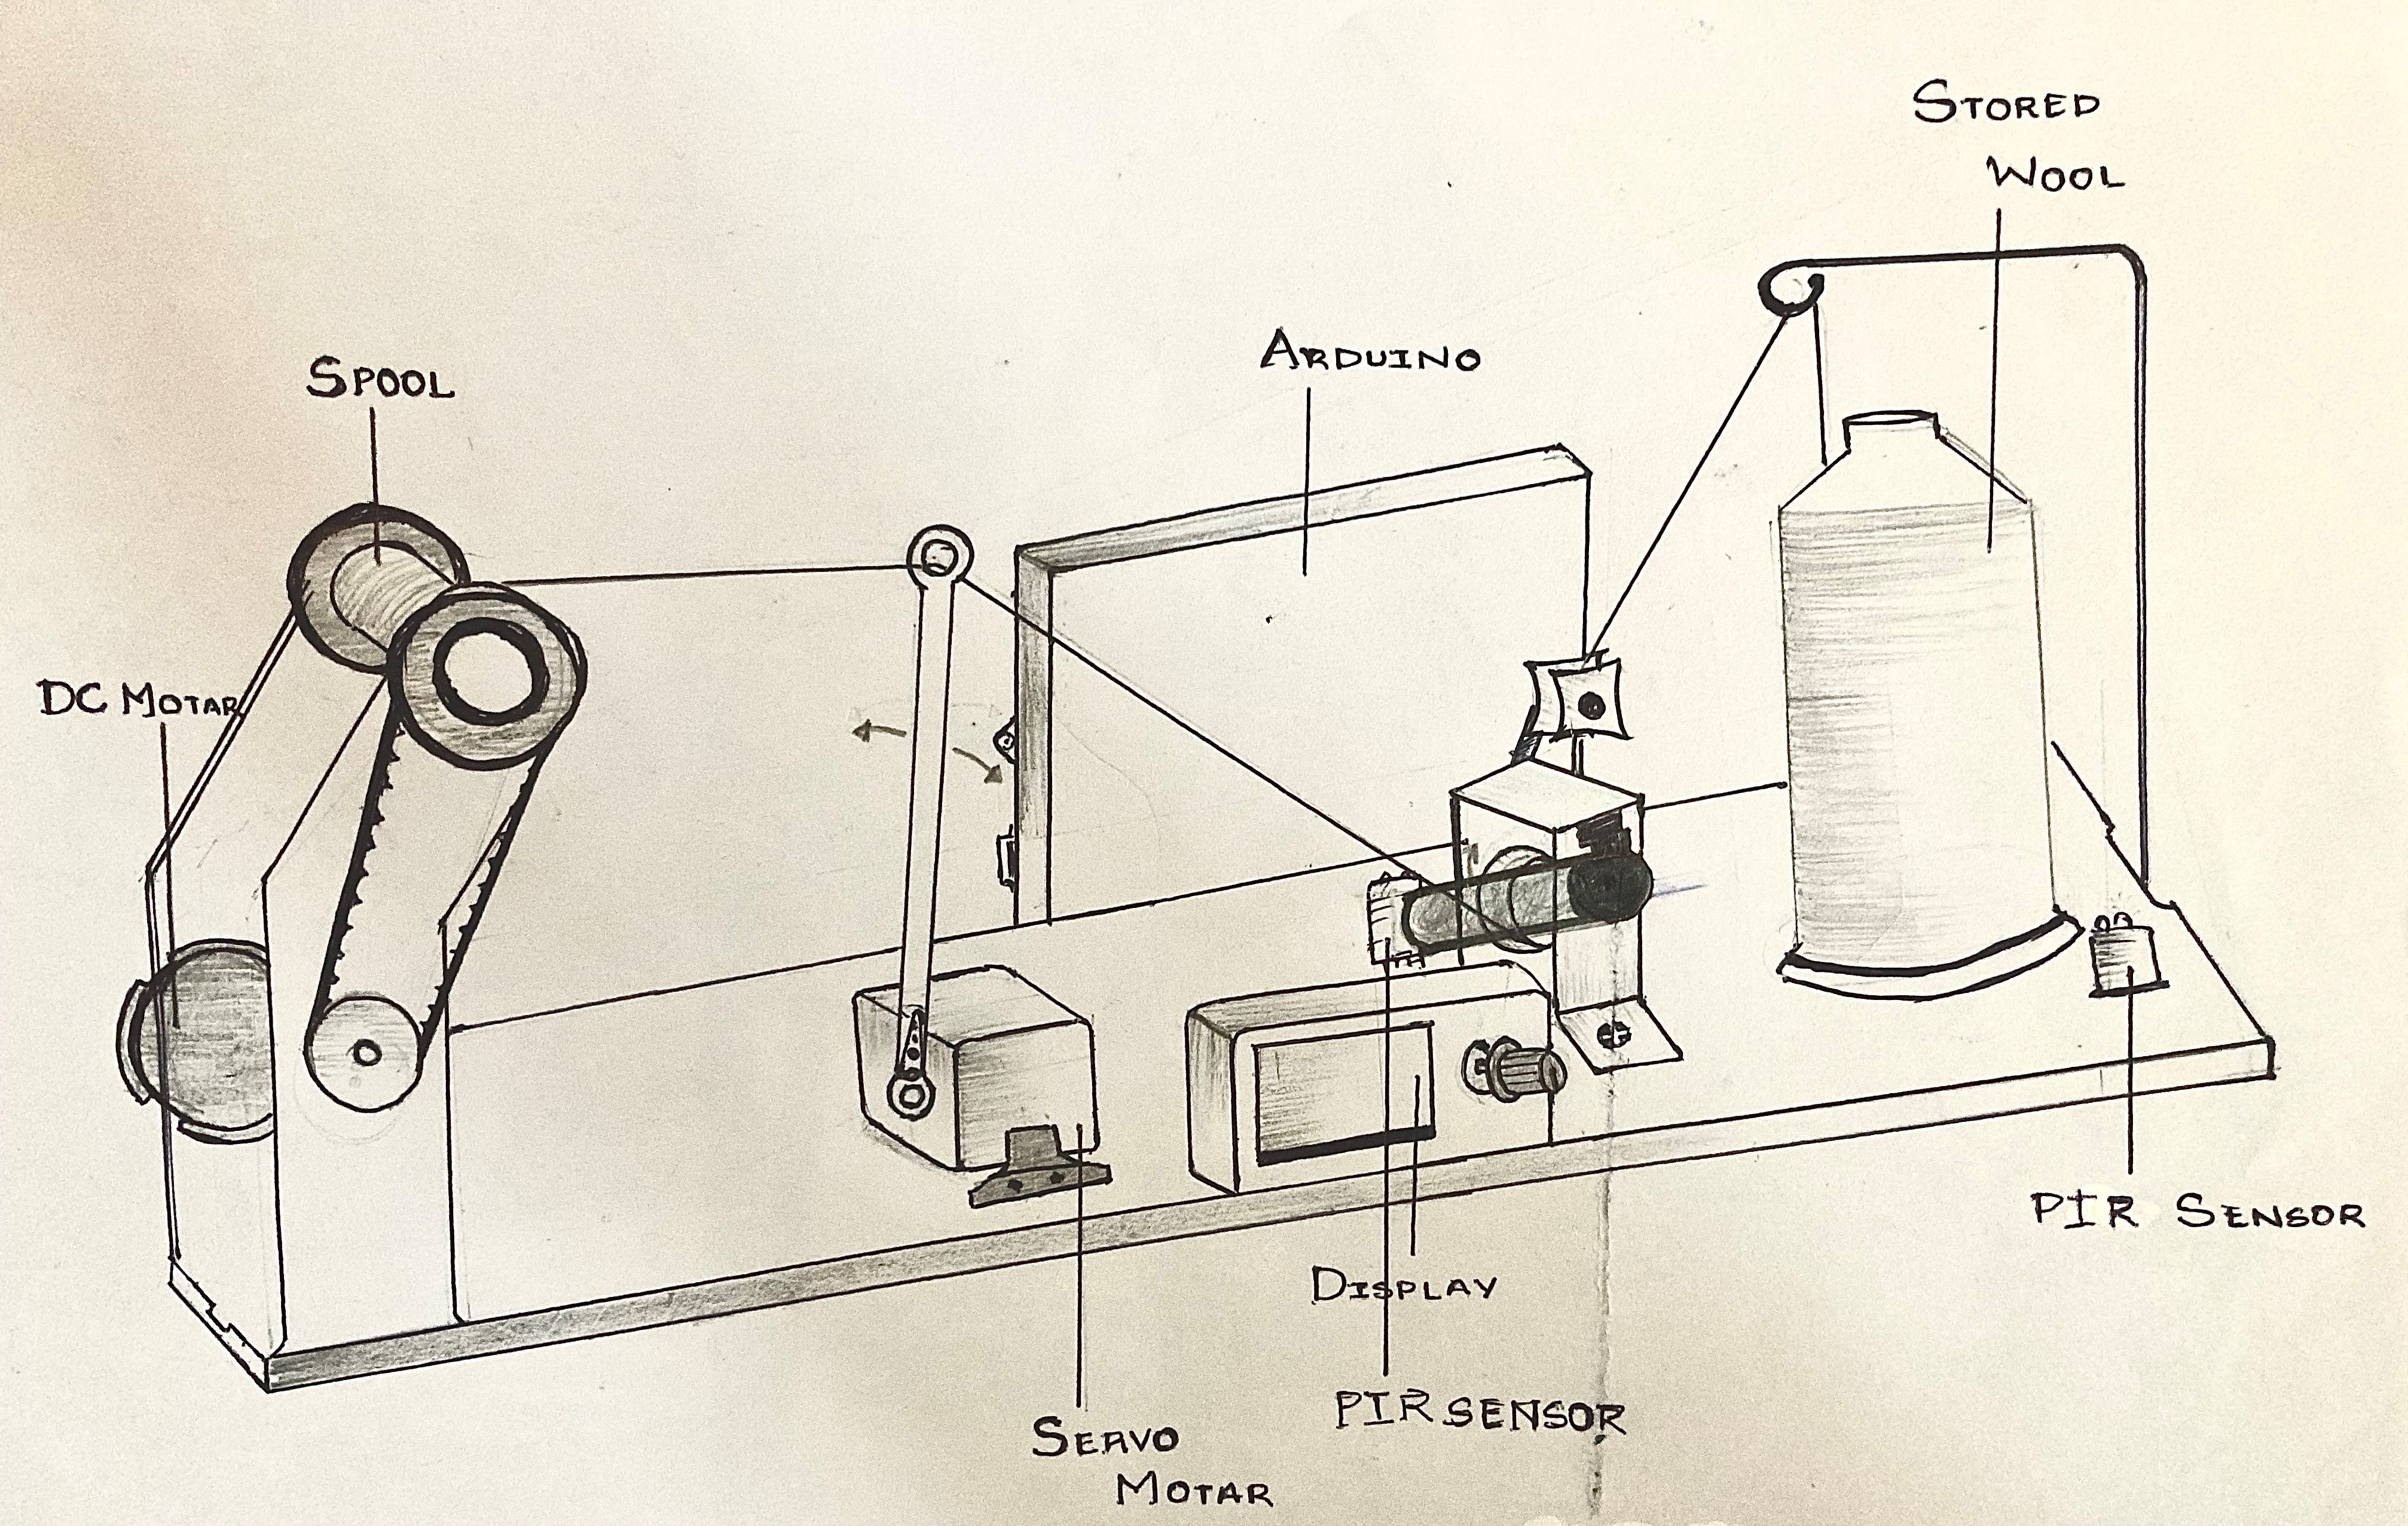 STORED
WOOL
ARDUINO
SPOOL
DC MOTAR
PIR SENSOR
DISPLAY
PIR SENSOR
SERVO
MOTAR